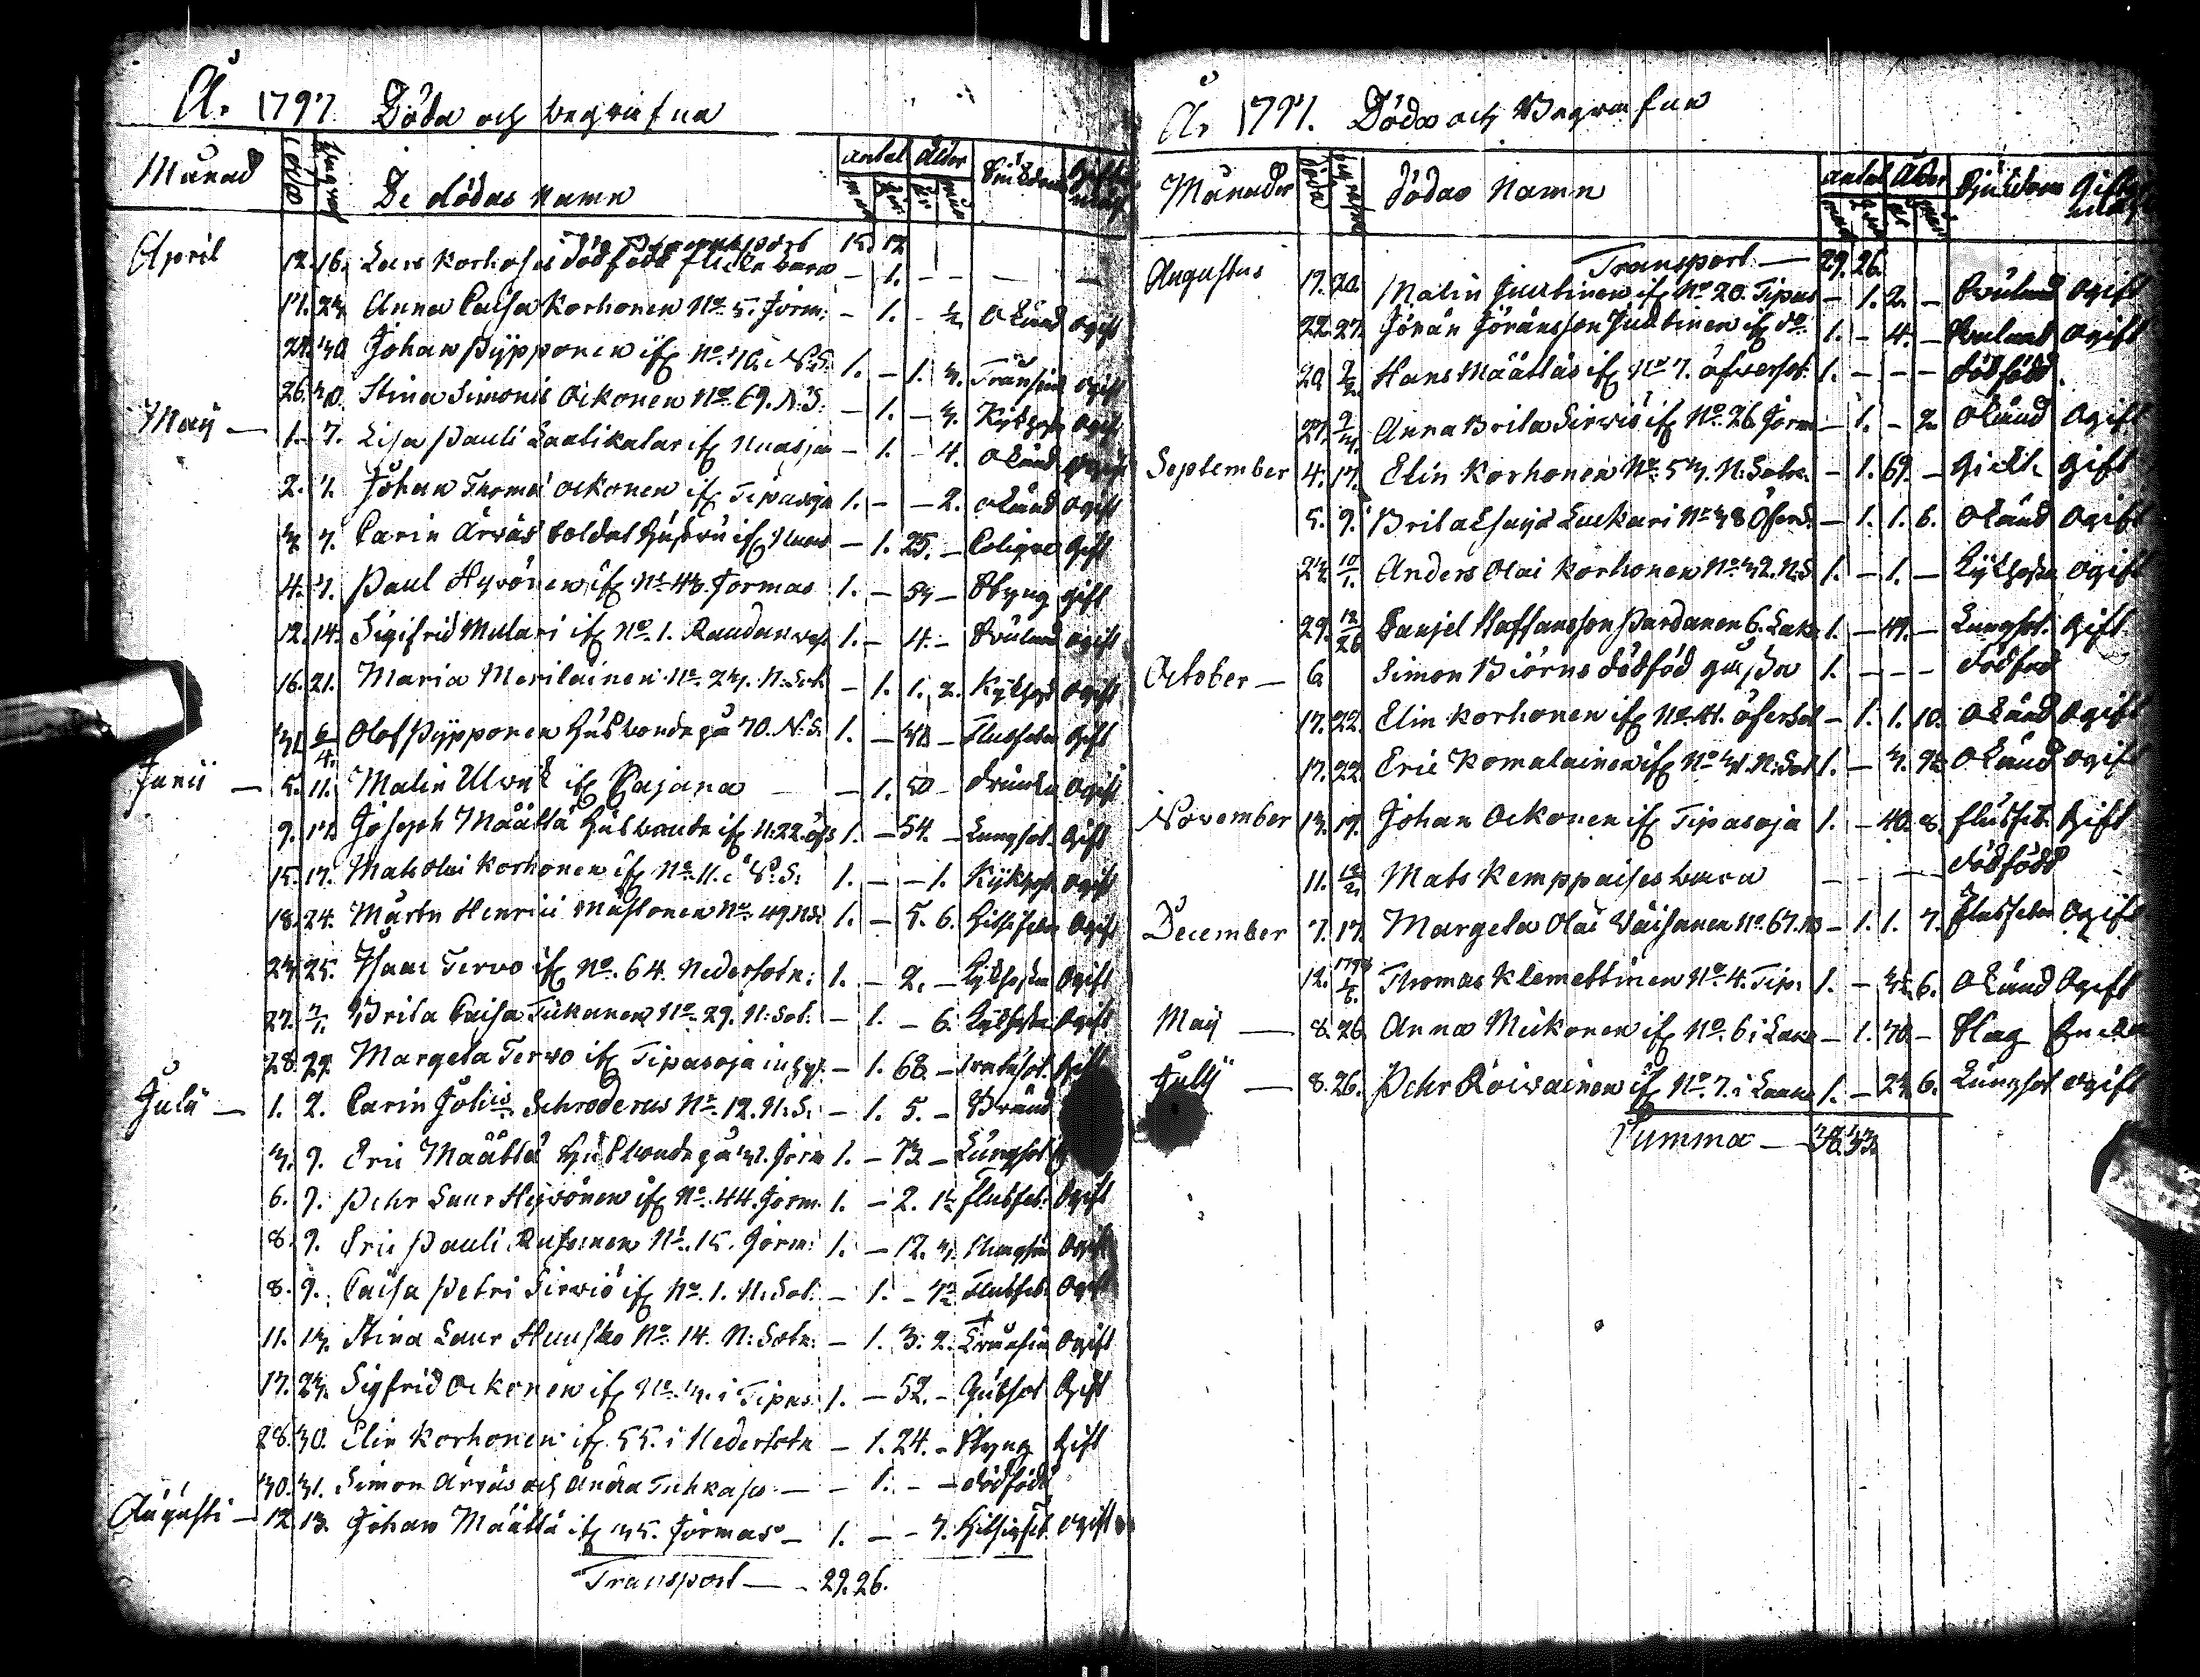 År 1797. Döda och begrafna
Månad Döda Begraf De dödas namn antal ålder Siukdom Gift
April Transport 15. 12
12. 16. Lars Korhoses dödfödt flicke barn – 1. – – – –
17. 23. Anna Caisa Korhonen No. 5. Jorm: – 1. – ½ Okänd ogift
24. 30. Johan Pypponen if No. 70. N.S. 1. – 1. 3. Trånsiud ogift
26. 30. Stina Simonis Ockonen No. 69. N.S. – 1. – 3. Kykhosta ogift
Maij – 1. 7. Lisa Pauli Laatikatar if Nuasjer – 1. – 4. okänd ogift
2. 7. Johan Thomæ ockonen if Tipasoja 1. – – 2. okänd ogift
3. 7. Carin Ärväs Soldat Hustru if Nuas – 1. 25. – Colique Gift
4. 7. Paul Hyvönen if No. 43. Jormas 1. – 53 – Styng gift
12. 14. Sigifrid Mulari if No. 1. Raudanveh. 1. – 4. – Svulnad ogift
16. 21. Maria Merilainen No. 23. N. Sot. – 1. 1. 2. Kykhost ogift
31. 6/4. Olof Pypponen Husbonde på 70. N.S. 1. – 30 – Flussfeber gift
Junii – 5. 11. Malin Ulvnk if Cajana – 1. 50 – drunkn ogift
9. 18. Joseph Määttä Husbonde if N. 22. öfs 1. – 54. – Lungsot. Gift
15. 17. Mats Olai Korhonen if No. 11. i N.S. 1. – – 1. Kykhost ogift
18. 24. Mårtn Henrici Mustonen No. 49. N.S. 1. – 5. 6. Hitsifebr Ogift
23. 25. Isaac Tervo if No. 64. Nedersotk: 1. – 2. – Kykhosta Ogift
27. 7/1. Brita Caisa Tickanen No. 29. N: Sot: – 1. – 6. Kykhosta Ogift
28. 29. Margeta Tervo if Tipasoja inhys. – 1. 68. – Gift
Julii – 1. 2. Carin Johis Schroderus No. 12. N.S. – 1. 5. – Bränd
3. 9. Eric Määttä Husbonde på 31. Jorm 1. – 73 – Lungsot
6. 9. Pehr Laur Hyvönen if No. 44. Jorm. 1. – 2. 1½ Flussfeb. Ogift
8. 9. Eric Pauli No. 15. Jorm: 1. – 12. 3. Ogift
8. 9. Caisa Petri Sirviö if No. 1. N. Sot: – 1. – Flussfeb. Ogift
11. 13. Stina Laur Huusko No. 14. N: Sotk: – 1. 3. 2. Trånsiu Ogift
17. 23. Sigfrid Ockonen if No. 3. i Tipas: 1. – 52. – Gulsot Gift
28. 30. Elin Korhonen if. 55. i Nedersotk – 1. 24. – Styng Gift
30. 31. Simon Ärväs och Anna Tuhkasis – – 1. – – dödfödd
Augusti – 12 13. Johan Määttä if 35. Jormas – 1. – – 7. Hitsigfeb. ogift
Transport – – 29. 26.
År 1797. Döda och Begrafna
Månader döda begrafne Dödas Namn antal Ålder Sjukdom Gift
Transport – 29. 26.
Augustus 17. 20. Malin Juntinen if No. 20. Tipas – 1. 2. – Svulnad ogift
22. 27. Jöran Jöransson Juntinen if do. 1. – 4. – Svulnad ogift
20 2/2. Hans Määttäs if No. 7. öfversot. 1. – – – dödfödd.
27. 9/3. Anna Brita Sirviö if No. 26 Jorm – 1. – 2 Okänd Ogift
September 4. 17. Elin Korhonen No. 53. N. Sotk. – 1. 69. – Gickt. Gift
5. 9. Brita Luckari No. 38 Öfvers. – 1. 1. 6. Okänd Ogift
23. 10/1. Anders Olai Korhonen No. 32. N.S 1. – 1. – Kykhosta ogift
29. 12/26 Danjel Staffansson Pardanen 6. Laka 1. – 49. – Lungsot. Gift
October – 6. Simon Biörns dödföd gåsse 1. – – – dödfod
17. 22. Elin Korhonen if No. 41. öfersot – 1. 1. 10. Okänd Ogift
17. 22. Eric Komalainen if No. 31. N. Sot 1. – 3. 9½ Okänd ogift
November 13. 19. Johan Ockonen if Tipasoja 1. – 40. 8. flussfeb. Gift
11. 12/2. Mats Kemppaises barn – – – – dödfödd
December 7. 17. Margeta Olai Väisänen No. 67. N – 1. 1. 7. Flussfeber Ogift
12. 1798 1/6. Thomas Klemettinen No. 4. Tip. 1. – 32. 6. Okänd Ogift
Maij – 8. 26. Anna Mickonen if No. 6 i Laka – 1. 70. – Slag Encka
Julij – 8. 26. Pehr Roivainen if No. 7. i Laaka 1. – 23. 6. Lungsot ogift
Summa – 38. 33.